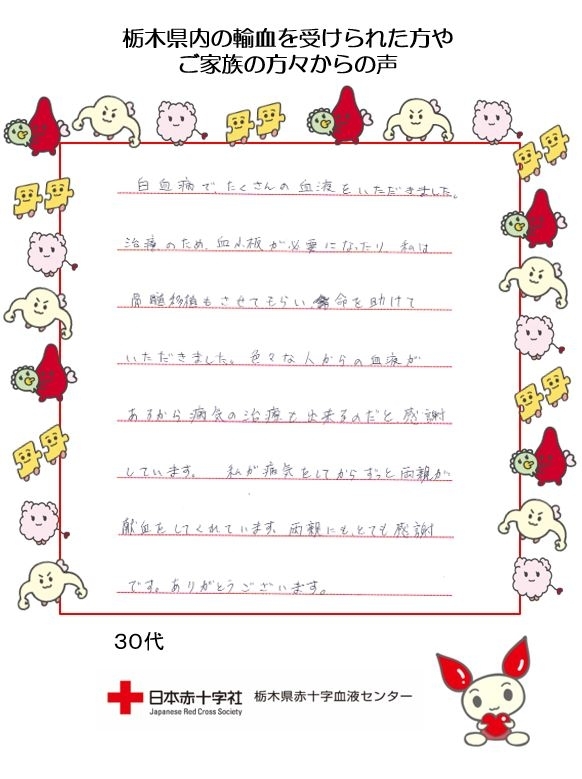 栃木県内の輸血を受けられた方や
ご家族の方々からの声
白血病で、たくさんの血液をいただきました。
治療のため、血小板が必要になったり、私は
骨髄移植もさせてもらい 命を助けて
いただきました。色々な人からの血液が
あるから病気の治療で出来るのだと感謝
しています。 私が病気をしてからずっと両親が
献血をしてくれています。両親にも、とても感謝
です。ありがとうございます。
30代
日本赤十字社 栃木県赤十字血液センター
Japanese Red Cross Society